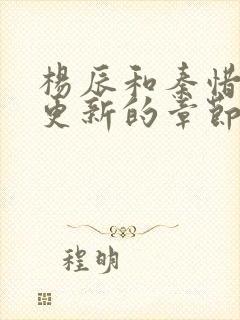 楊辰和秦惜
更新的章節
程明